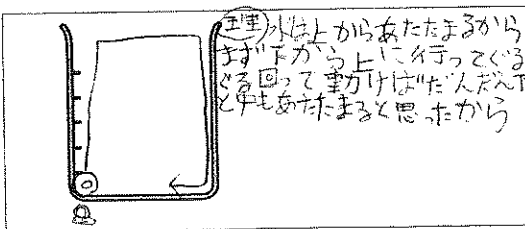 理 水は上からあたたまるから
まず下から上に行ってぐる
ぐる回って動けばだんだん下
と中もあたたまると思ったから